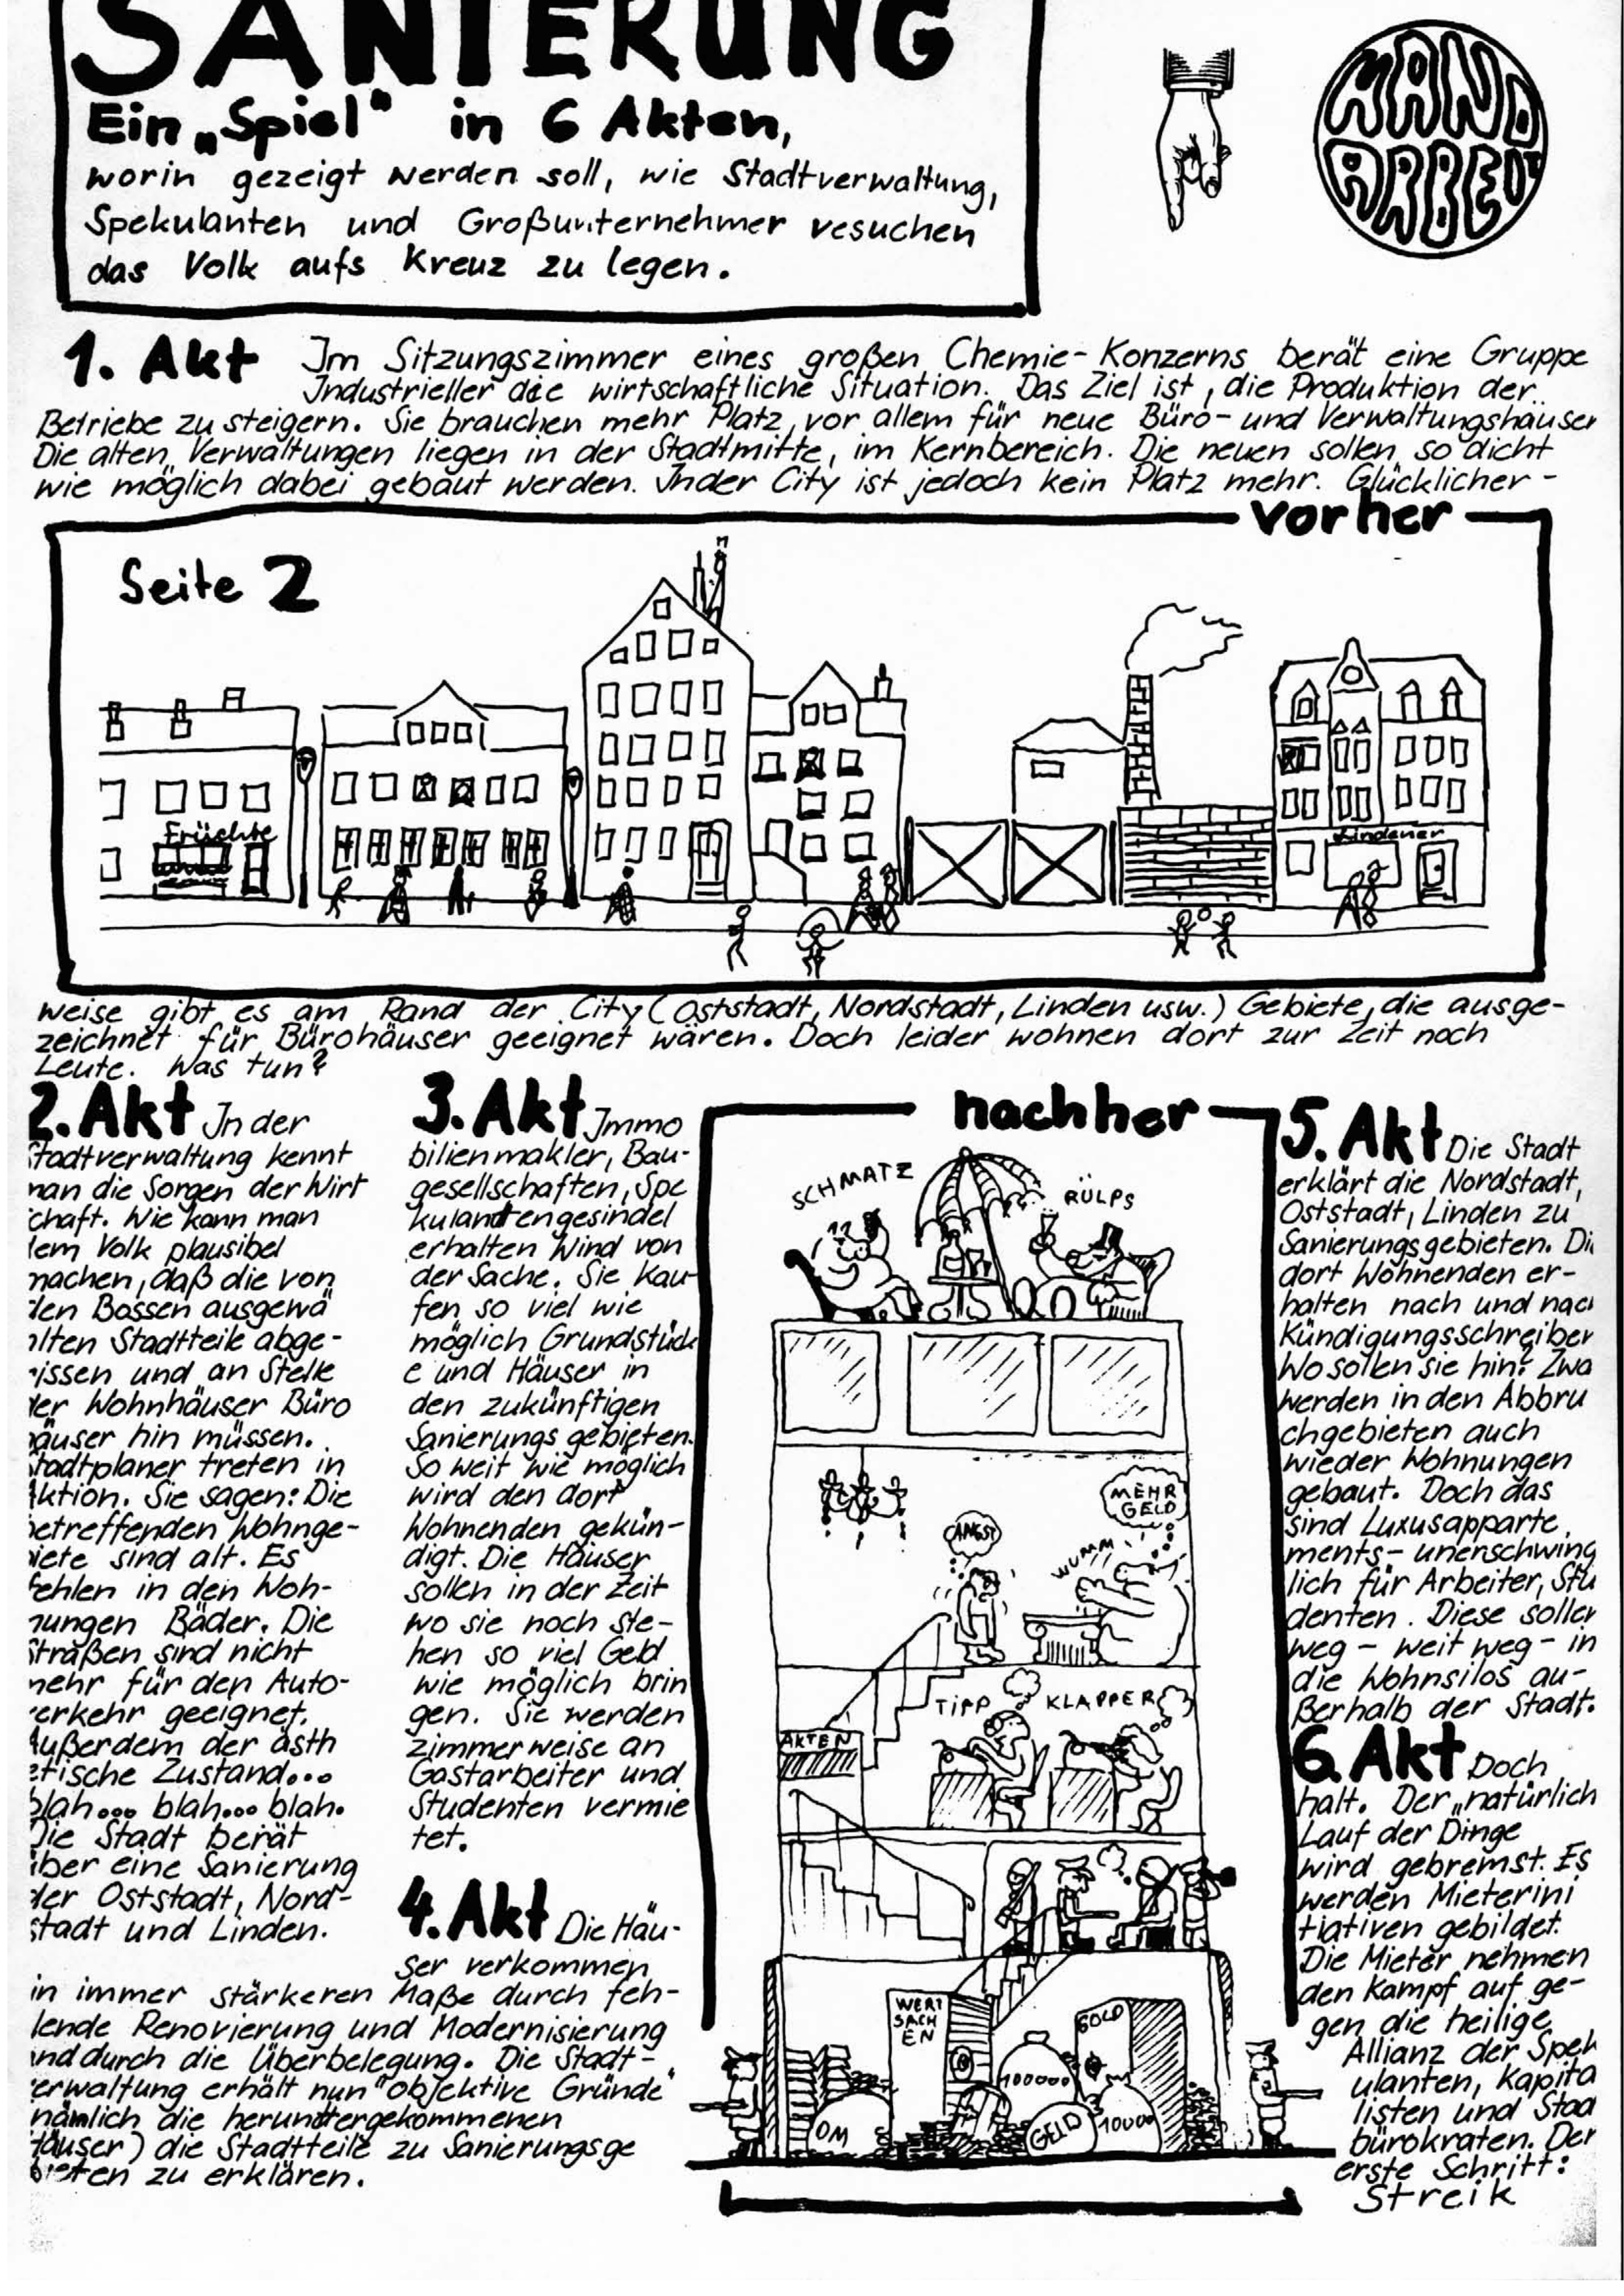 SANIERUNG
Ein „Spiel" in 6 Akten,
worin gezeigt werden soll, wie Stadtverwaltung,
Spekulanten und Großunternehmer vesuchen
das Volk aufs Kreuz zu legen.
HAND
ARBEIT
1. Akt Im Sitzungszimmer eines großen Chemie-Konzerns berät eine Gruppe
Industrieller die wirtschaftliche Situation. Das Ziel ist, die Produktion der
Betriebe zu steigern. Sie brauchen mehr Platz, vor allem für neue Büro- und Verwaltungshäuser
Die alten Verwaltungen liegen in der Stadtmitte, im Kernbereich. Die neuen sollen so dicht
wie möglich dabei gebaut werden. Inder City ist jedoch kein Platz mehr. Glücklicher-
vorher
Seite 2
Früchte
Lindener
weise gibt es am Rand der City (Oststadt, Nordstadt, Linden usw.) Gebiete, die ausge-
zeichnet für Bürohäuser geeignet wären. Doch leider wohnen dort zur Zeit noch
Leute. Was tun?
2. Akt In der
Stadtverwaltung kennt
man die Sorgen der Wirt
schaft. Wie kann man
dem Volk plausibel
machen, daß die von
den Bossen ausgewä
hlten Stadtteile abge-
rissen und an Stelle
der Wohnhäuser Büro
häuser hin müssen.
Stadtplaner treten in
Aktion. Sie sagen: Die
betreffenden Wohnge-
biete sind alt. Es
fehlen in den Woh-
nungen Bäder. Die
Straßen sind nicht
mehr für den Auto-
verkehr geeignet.
Außerdem der ästh
etische Zustand...
blah... blah... blah.
Die Stadt berät
über eine Sanierung
der Oststadt, Nord-
stadt und Linden.
3. Akt Immo
bilienmakler, Bau-
gesellschaften, Spe
kulantengesindel
erhalten Wind von
der Sache. Sie kau-
fen so viel wie
möglich Grundstück
e und Häuser in
den zukünftigen
Sanierungsgebieten.
So weit wie möglich
wird den dort
Wohnenden gekün-
digt. Die Häuser
sollen in der Zeit
wo sie noch ste-
hen so viel Geld
wie möglich brin
gen. Sie werden
zimmerweise an
Gastarbeiter und
Studenten vermie
tet.
4. Akt Die Häu-
ser verkommen
in immer stärkeren Maße durch feh-
lende Renovierung und Modernisierung
und durch die Überbelegung. Die Stadt-
verwaltung erhält nun "objektive Gründe"
nämlich die heruntergekommenen
Häuser) die Stadtteile zu Sanierungsge
bieten zu erklären.
nachher
SCHMATZ
RÜLPS
MEHR
GELD
ANGST
WUMM
TIPP
KLAPPER
AKTEN
WERT
SACH
EN
GOLD
100000
DM
GELD
10000
5. Akt Die Stadt
erklärt die Nordstadt,
Oststadt, Linden zu
Sanierungsgebieten. Di
dort Wohnenden er-
halten nach und nach
Kündigungsschreiben
Wo sollen sie hin? Zwa
werden in den Abbru
chgebieten auch
wieder Wohnungen
gebaut. Doch das
sind Luxusapparte
ments- unerschwing
lich für Arbeiter, Stu
denten. Diese sollen
weg - weit weg - in
die Wohnsilos au-
ßerhalb der Stadt.
6. Akt Doch
halt. Der „natürlich
Lauf der Dinge
wird gebremst. Es
werden Mieterini
tiativen gebildet.
Die Mieter nehmen
den Kampf auf ge-
gen die heilige
Allianz der Spek
ulanten, Kapita
listen und Staa
bürokraten. Der
erste Schritt:
Streik